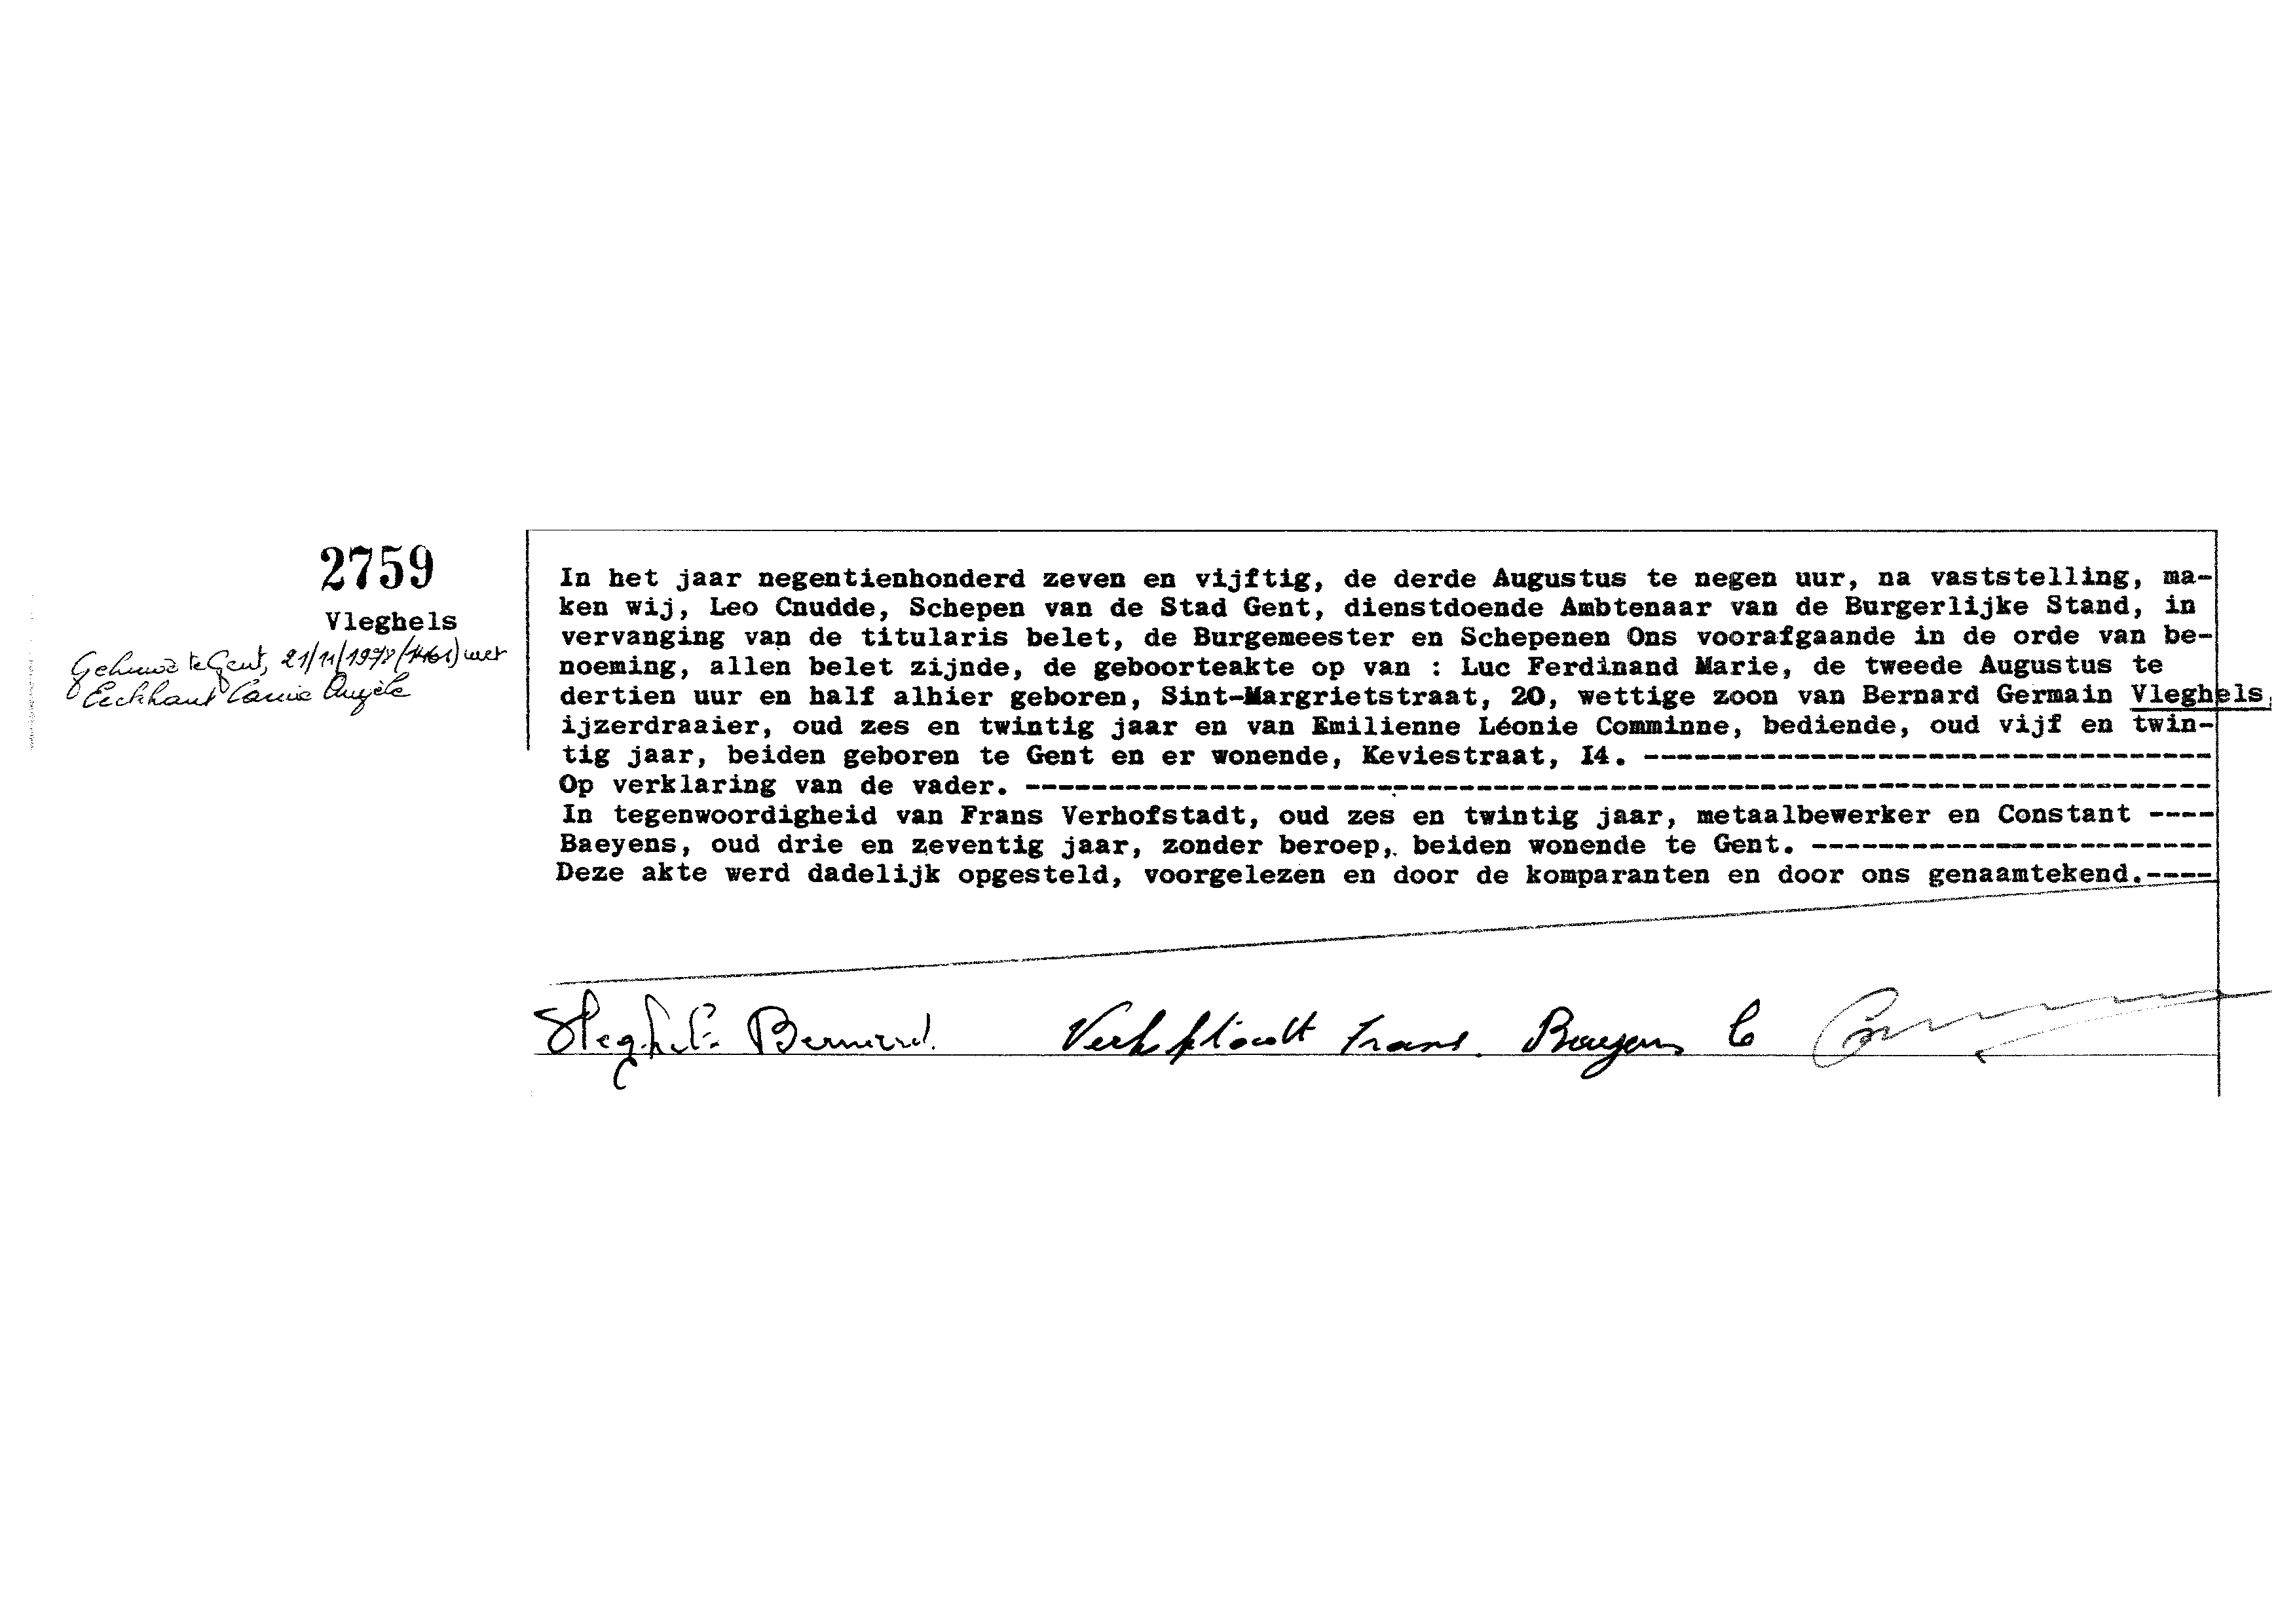 2759
Vleghels
Gehuwd te Gent, 21/11/1978 met
Eeckhaut Angèle
In het jaar negentienhonderd zeven en vijftig, de derde Augustus te negen uur, na vaststelling, ma-
ken wij, Leo Cnudde, Schepen van de Stad Gent, dienstdoende Ambtenaar van de Burgerlijke Stand, in
vervanging van de titularis belet, de Burgemeester en Schepenen Ons voorafgaande in de orde van be-
noeming, allen belet zijnde, de geboorteakte op van : Luc Ferdinand Marie, de tweede Augustus te
dertien uur en half alhier geboren, Sint-Margrietstraat, 20, wettige zoon van Bernard Germain Vleghels,
ijzerdraaier, oud zes en twintig jaar en van Emilienne Léonie Comminne, bediende, oud vijf en twin-
tig jaar, beiden geboren te Gent en er wonende, Keviestraat, I4. ----------------------------------
Op verklaring van de vader. -----------------------------------------------------------------------
In tegenwoordigheid van Frans Verhofstadt, oud zes en twintig jaar, metaalbewerker en Constant ----
Baeyens, oud drie en zeventig jaar, zonder beroep, beiden wonende te Gent. ------------------------
Deze akte werd dadelijk opgesteld, voorgelezen en door de komparanten en door ons genaamtekend.----
Vleghels Bernard. Verhofstadt Frans. Baeyens C